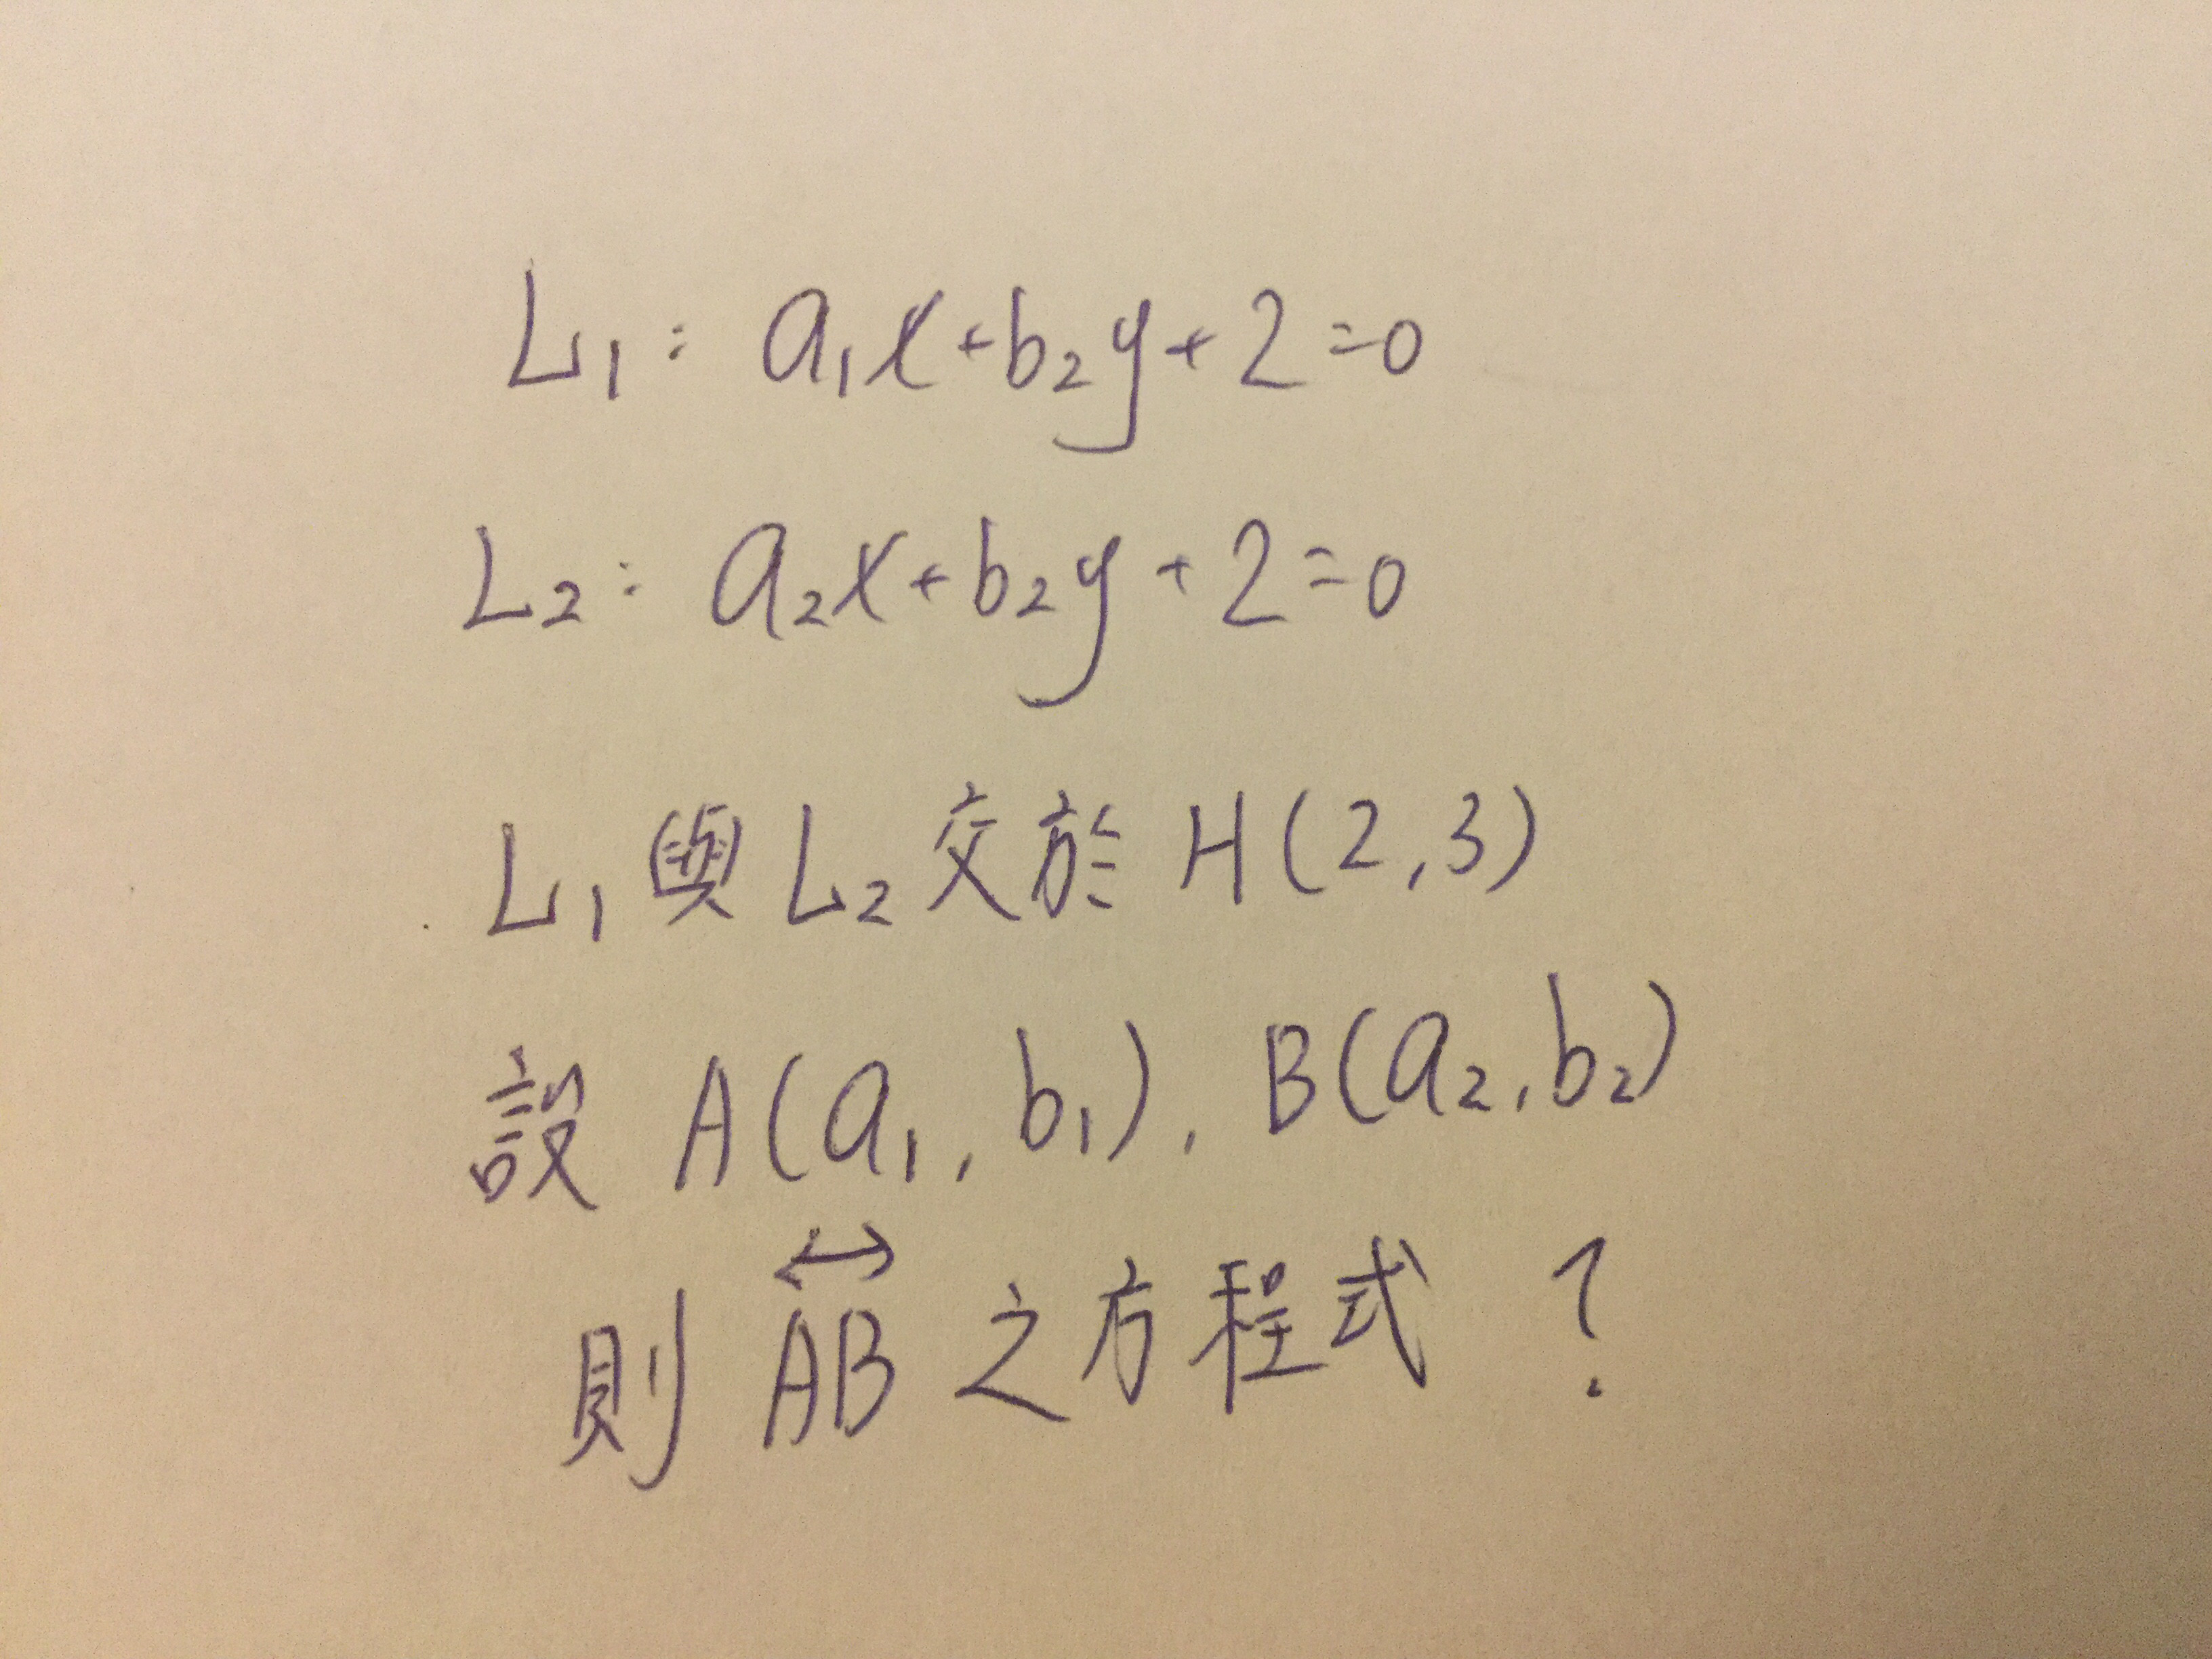 L₁: a₁x+b₂y+2=0
L₂: a₂x+b₂y+2=0
L₁與L₂交於H(2,3)
設 A(a₁,b₁), B(a₂,b₂)
則 \overleftrightarrow{AB} 之方程式?